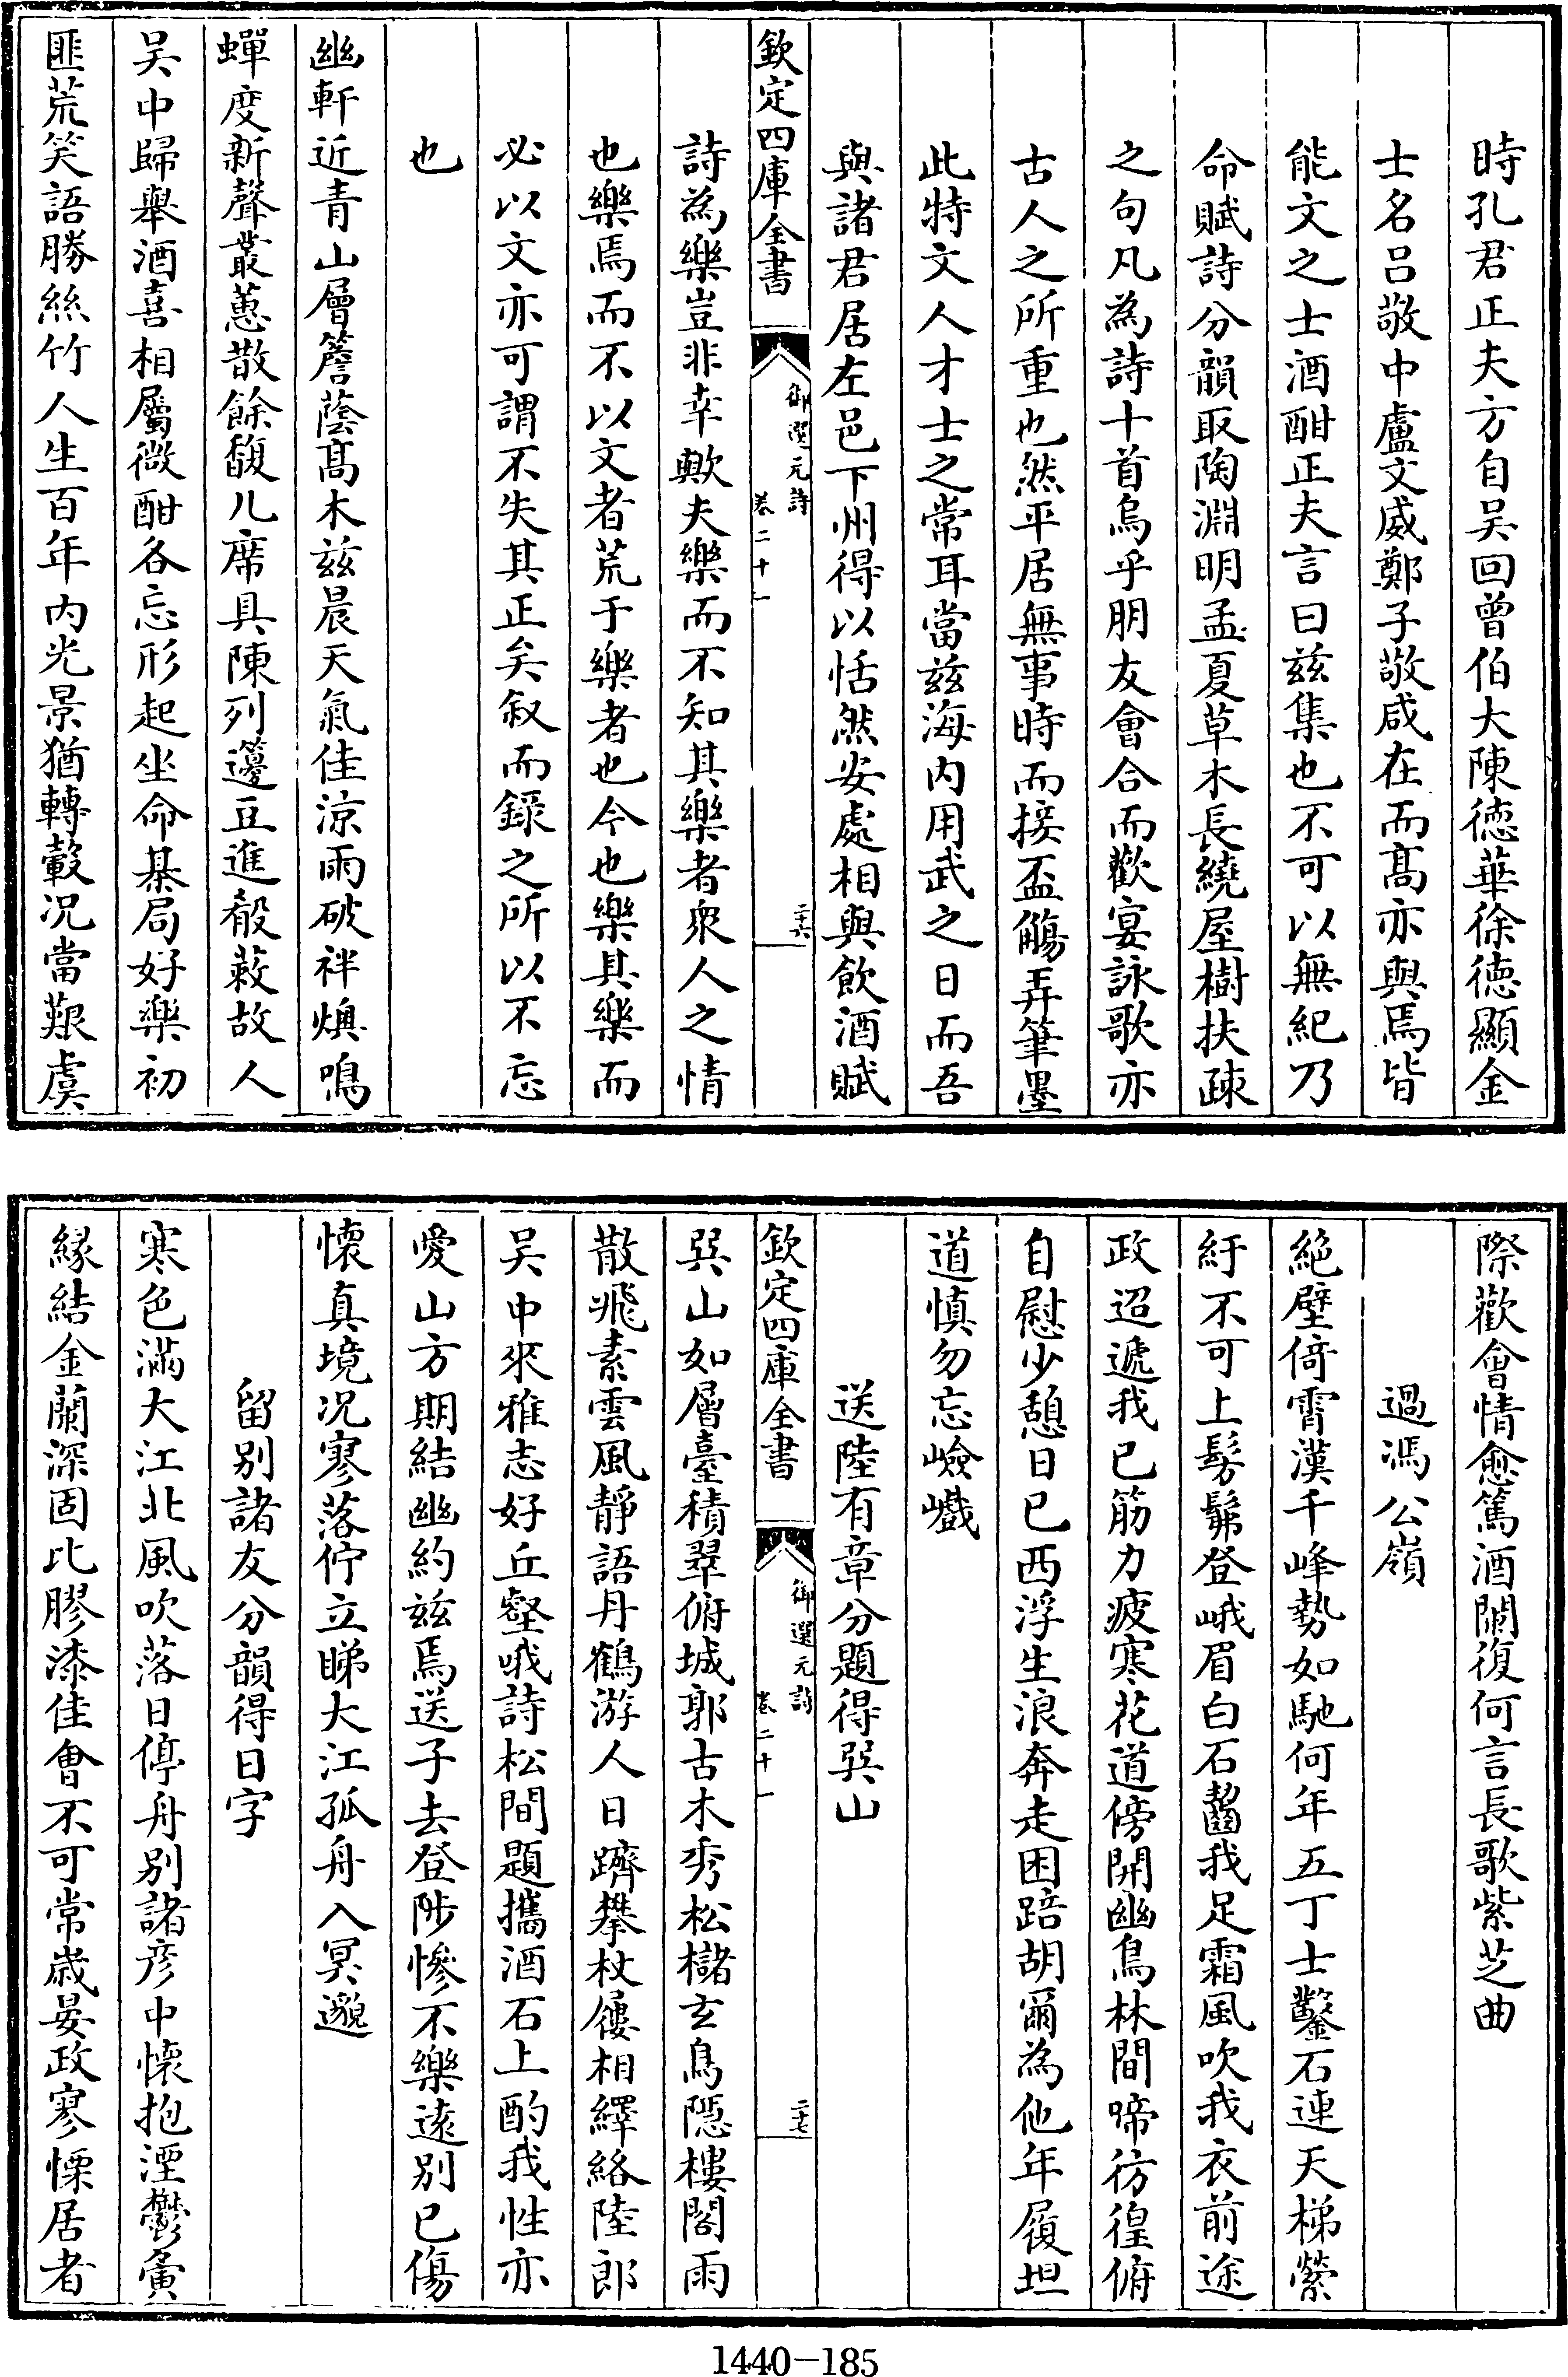 時孔君正夫方自吴回曾伯大陳徳華徐徳顯金
士名吕敬中盧文威鄭子敬咸在而髙亦與焉皆
能文之士酒酣正夫言曰兹集也不可以無紀乃
命賦詩分韻取陶淵明孟夏草木長繞屋樹扶疎
之句凡為詩十首烏乎朋友會合而歡宴詠歌亦
古人之所重也然平居無事時而接盃觴弄筆墨
此特文人才士之常耳當兹海内用武之日而吾
與諸君居左邑下州得以恬然安處相與飲酒賦
欽定四庫全書
御選元詩
卷二十一
二十六
詩為樂豈非幸歟夫樂而不知其樂者衆人之情
也樂焉而不以文者荒于樂者也今也樂其樂而
必以文亦可謂不失其正矣叙而録之所以不忘
也
幽軒近青山層簷蔭髙木兹晨天氣佳凉雨破袢燠鳴
蟬度新聲叢蕙散餘馥几席具陳列籩豆進殽蔌故人
吴中歸舉酒喜相屬微酣各忘形起坐命棊局好樂初
匪荒笑語勝絲竹人生百年内光景猶轉轂况當艱虞
際歡會情愈篤酒闌復何言長歌紫芝曲
過馮公嶺
絶壁倚霄漢千峰勢如馳何年五丁士鑿石連天梯縈
紆不可上髣髴登峨眉白石齧我足霜風吹我衣前途
政迢遞我已筋力疲寒花道傍開幽鳥林間啼彷徨俯
自慰少憩日已西浮生浪奔走困踣胡爾為他年履坦
道慎勿忘嶮巇
送陸有章分題得巽山
巽山如層臺積翠俯城郭古木秀松櫧玄鳥隱樓閣雨
散飛素雲風靜語丹鶴游人日躋攀杖屨相繹絡陸郎
吴中來雅志好丘壑哦詩松間題攜酒石上酌我性亦
愛山方期結幽約兹焉送子去登陟慘不樂逺别已傷
懐真境况寥落佇立睇大江孤舟入冥邈
留别諸友分韻得日字
寒色滿大江北風吹落日停舟别諸彦中懐抱湮鬱夤
緣結金蘭深固比膠漆佳會不可常歳晏政寥慄居者
欽定四庫全書
御選元詩
卷二十一
二十七
1440-185